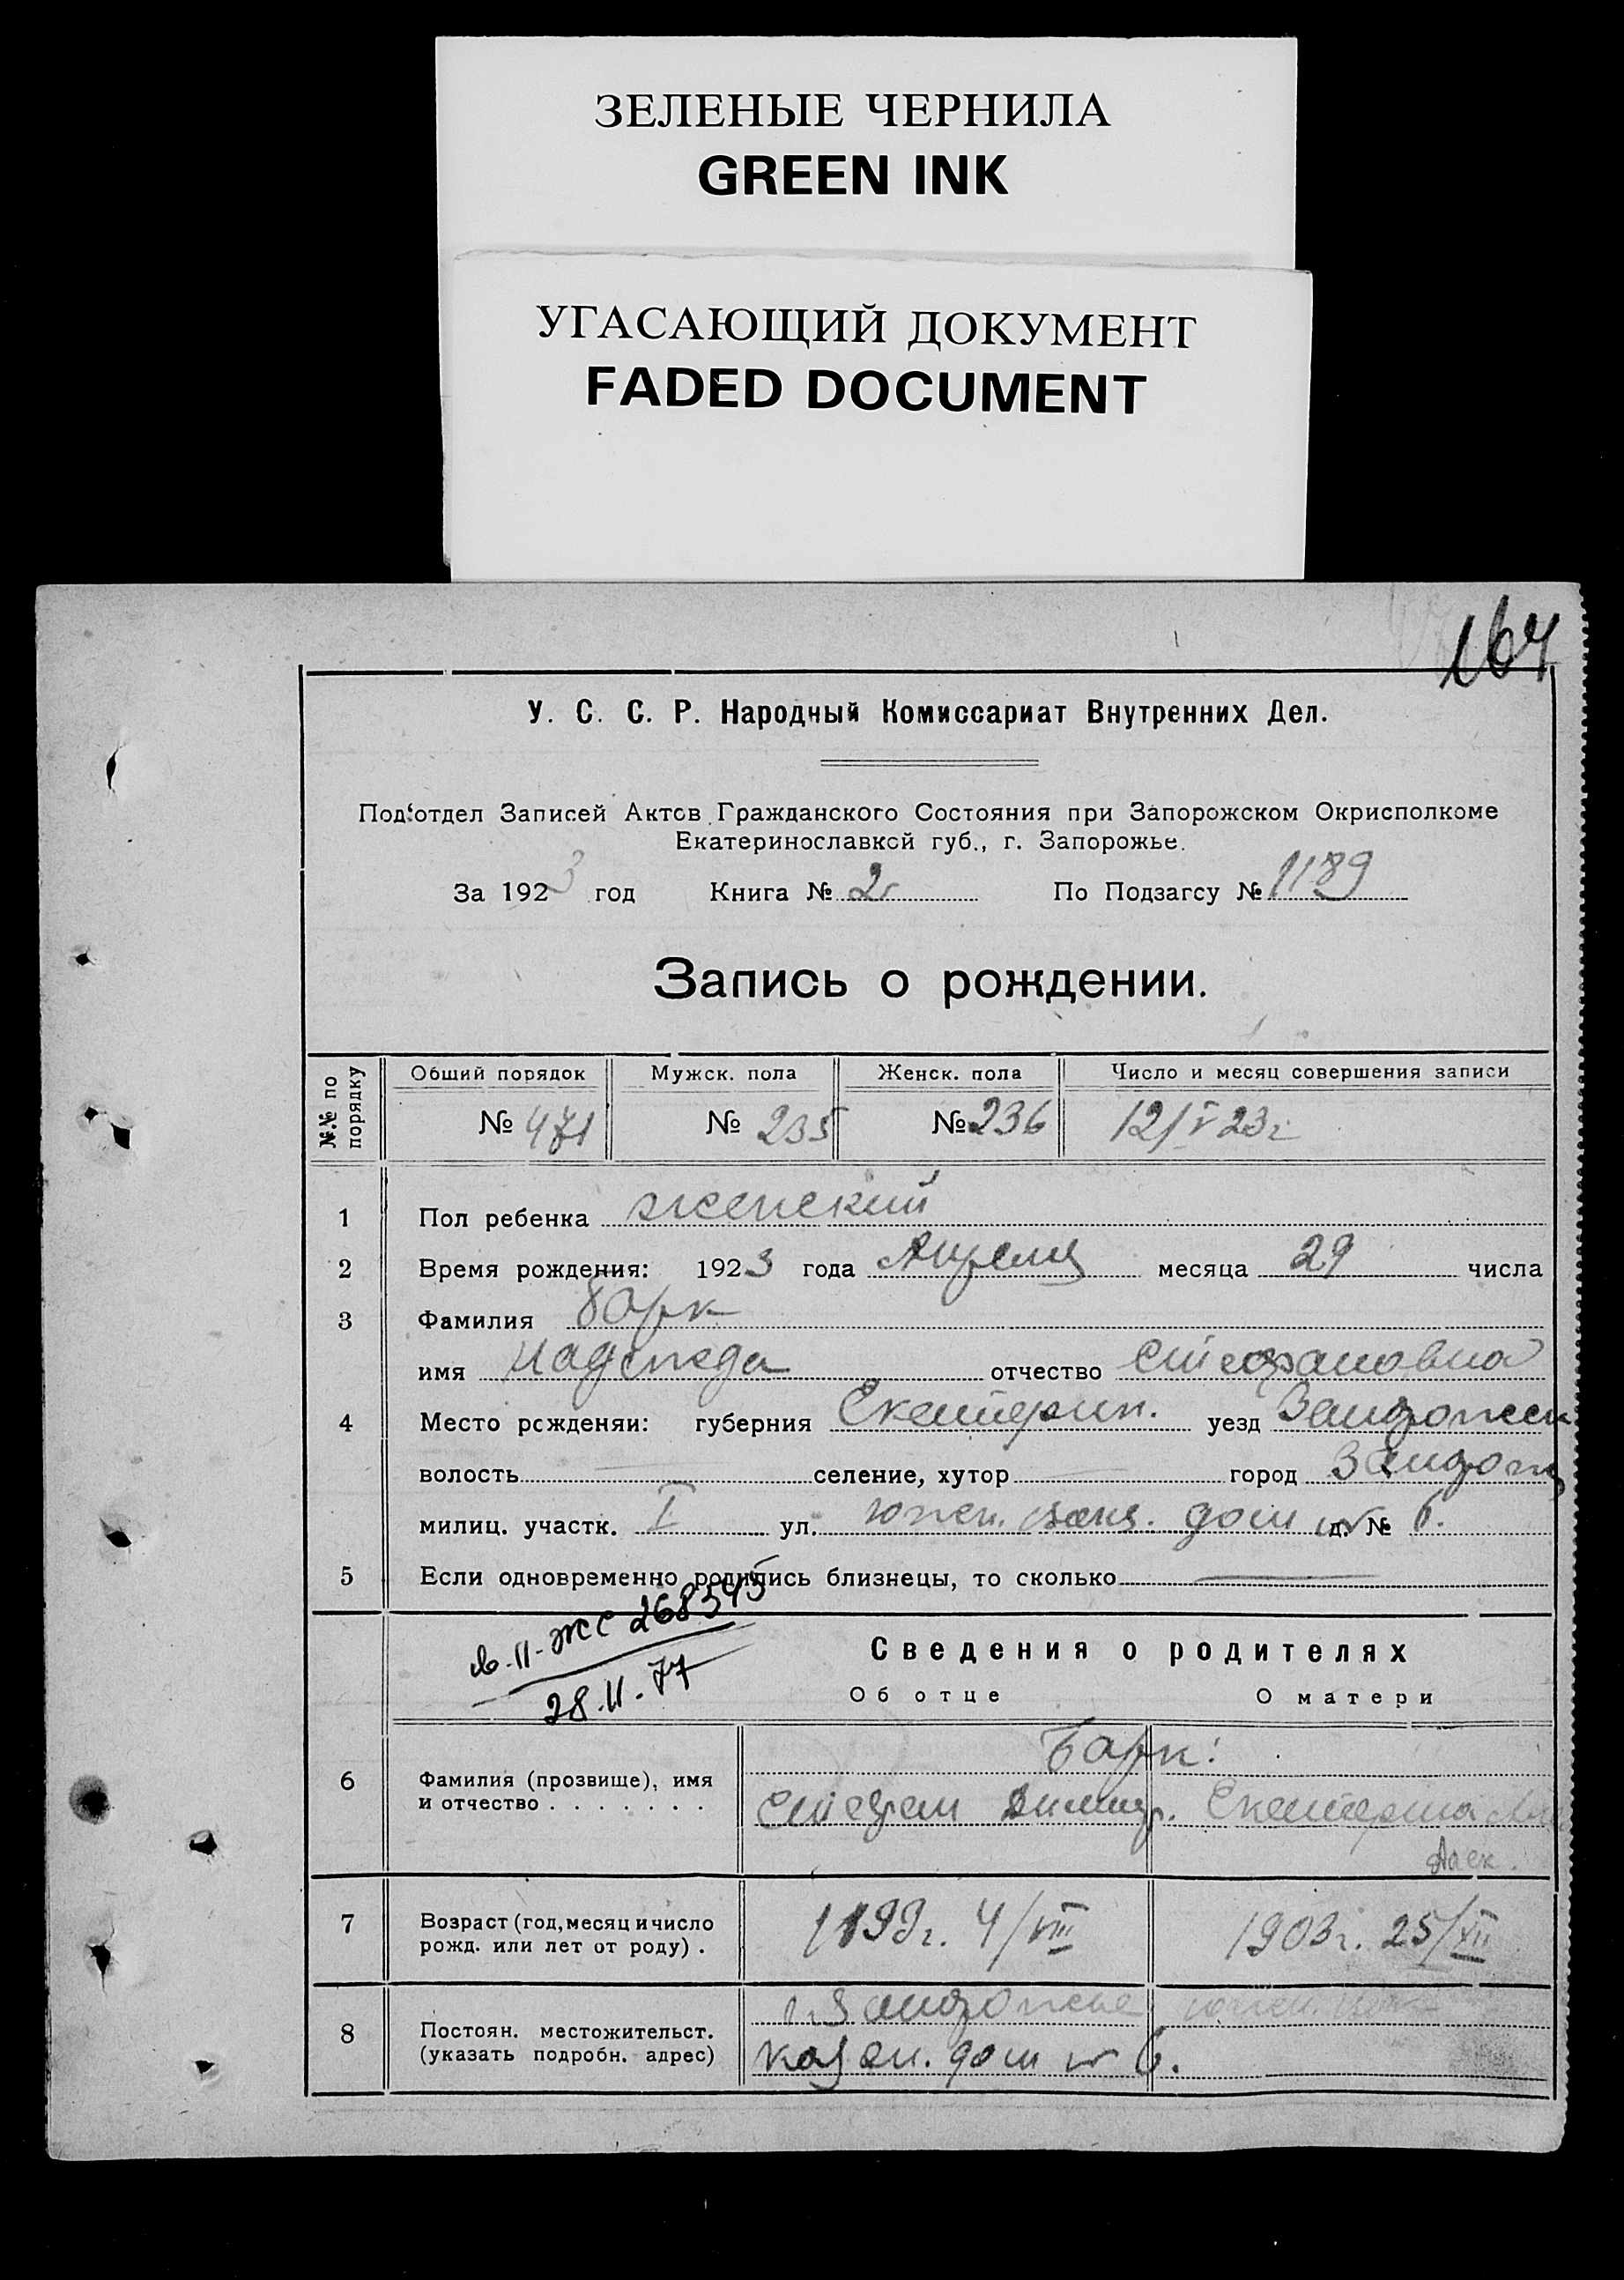 ЗЕЛЕНЫЕ ЧЕРНИЛА
GREEN INK
УГАСАЮЩИЙ ДОКУМЕНТ
FADED DOCUMENT
164
У. С. С. Р. Народный Комиссариат Внутренних Дел.
Под‘отдел Записей Актов Гражданского Состояния при Запорожском Окрисполкоме
Екатеринославкой губ., г. Запорожье.
За 1923 год Книга № 2 По Подзагсу № 1189
Запись о рождении.
№№ по порядку Общий порядок Мужск. пола Женск. пола Число и месяц совершения записи
№ 471 № 235 № 236 12/V 23г
1 Пол ребенка женский
2 Время рождения: 1923 года Апреля месяца 29 числа
3 Фамилия Барк
имя Надежда отчество Стефановна
4 Место рсжденяи: губерния Екатерин. уезд Запорожск
волость селение, хутор город Запорож
милиц. участк. I ул. южн. дом д. № 6.
5 Если одновременно родились близнецы, то сколько
II-ЖС 268545
28.11.77
Сведения о родителях
Об отце О матери
Барк:
6 Фамилия (прозвище), имя
и отчество . . . . . . . Стефан Димитр. Екатерина
Алек.
7 Возраст (год, месяц и число
рожд. или лет от роду) . 1899г. 4/VIII 1903г. 25/XII
8 Постоян. местожительст.
(указать подробн. адрес) г. Запорожье южн.
казен. дом № 6.